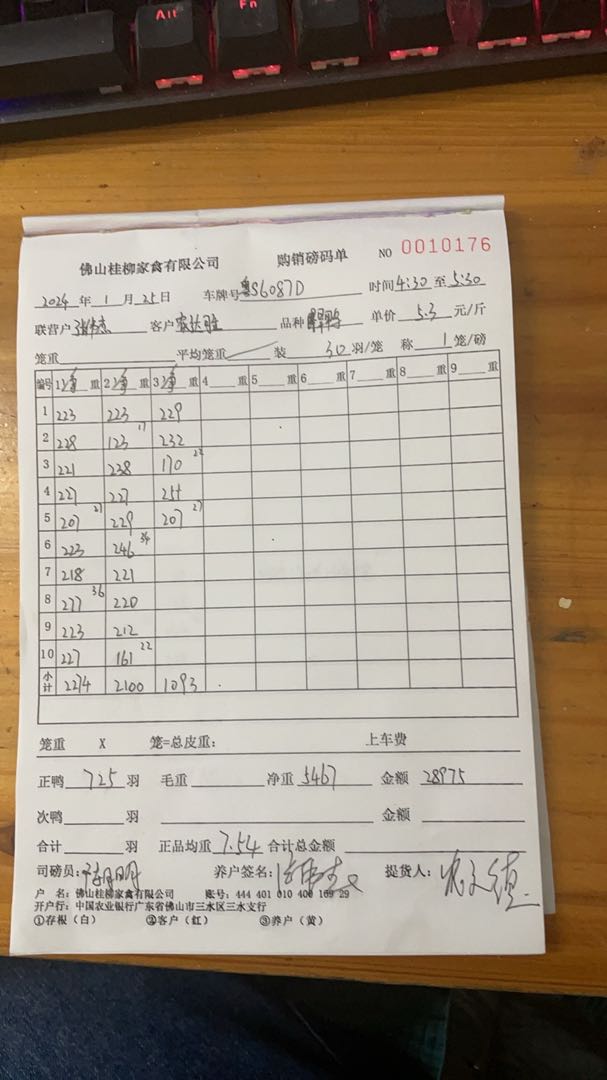 Alt Fn
佛山桂柳家禽有限公司 购销磅码单 NO 0010176
2024 年 1 月 25 日 车牌号 粤S6087D 时间 4:30 至 5:30
联营户 客户 品种 单价 5.3 元/斤
笼重 平均笼重 装 30 羽/笼 称 1 笼/磅
编号 1 净 重 2 净 重 3 净 重 4 重 5 重 6 重 7 重 8 重 9 重
1 223 223 229
2 228 123 17 232
3 221 238 170 22
4 227 227
5 207 27 229 207 27
6 223 246 34
7 218 221
8 277 36 220
9 223 212
10 227 161 22
小计 2274 2100 1093
笼重 X 笼=总皮重: 上车费
正鸭 725 羽 毛重 净重 5467 金额 28975
次鸭 羽 金额
合计 羽 正品均重 7.54 合计总金额
司磅员: 养户签名: 提货人:
户 名: 佛山桂柳家禽有限公司 账号: 444 401 010 400 169 29
开户行: 中国农业银行广东省佛山市三水区三水支行
①存根(白) ②客户(红) ③养户(黄)